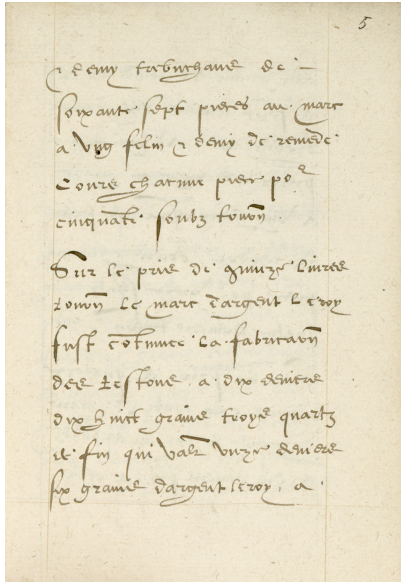 5
& demy trebuchans de
soixante sept pieces au marc
a ung felin & demy de remede
Cours chacune piece po^r
cinquante soubz tourn
Sur le pris de quinze livres
tourn le marc d'argent le roy
fust continuee la fabricaon
des testons a dix deniers
dix huict grains troys quartz
de fin qui vallt unze deniers
six grains dargent le roy a